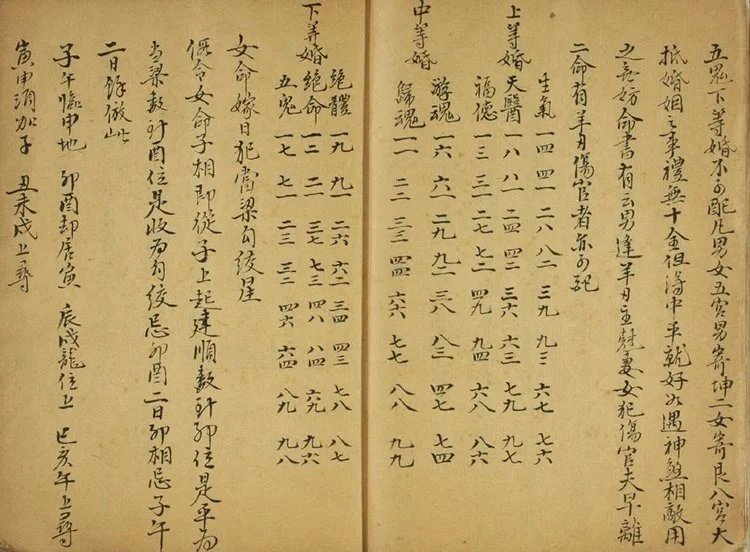 五鬼下等婚不可配凡男女五宮男寄坤二女寄艮八宮大
抵婚姻之事禮無十全但得中平就好如遇神煞相敵用
之無妨命書有云男逢羊刃主尅妻女犯傷官夫早離
二命有羊刃傷官者亦可配
上等婚
生氣 一四 四一 二八 八二 三九 九三 六七 七六
天醫 一八 八一 二四 四二 三六 六三 七九 九七
福德 一三 三一 二七 七二 四九 九四 六八 八六
中等婚
遊魂 一六 六一 二九 九二 三八 八三 四七 七四
歸魂 一一 二二 三三 四四 六六 七七 八八 九九
下等婚
絕體 一九 九一 二六 六二 三四 四三 七八 八七
絕命 一二 二一 三七 七三 四八 八四 六九 九六
五鬼 一七 七一 二三 三二 四六 六四 八九 九八
女命嫁日犯當梁勾絞星
假令女命子相即從子上起建順數到卯位是平為
當梁數到酉位是收為勾絞忌卯酉二日卯相忌子午
二日餘倣此
子午臨申地 卯酉却居寅 辰戌龍位上 巳亥午上尋
寅申須加子 丑未戌上尋